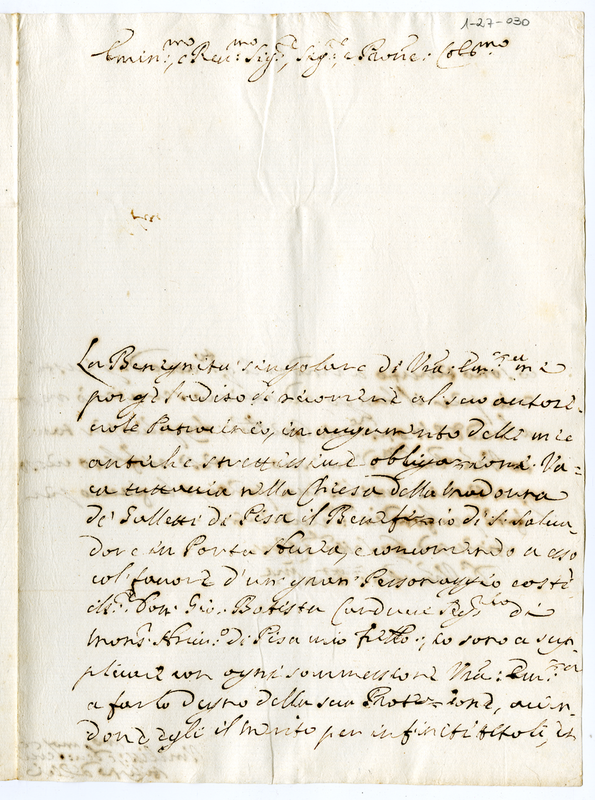 1-27-030
Emin:mo, e Reu:mo Sig:r, Sig:r, e Prone: Col:mo
La Benignità singolare di Vra: Em:za mi
porge l'adito di ricorrere al suo autore-
uole Patrocinio, in augumento delle mie
antiche strettissime obligazioni. Va-
ca tuttauia nella Chiesa della Madonna
de Galletti di Pisa il Benefizio di S. Salua-
dore in Porta Aurea, e concorrendo a esso
col' fauore d'un' gran' Personaggio costì
Don: Gio: Batista Carducci Seg:rio di
Mons: Arciu:o di Pisa mio frello:, io sono a sup-
plicare con ogni sommessione Vra: Em:za
a farlo degno della sua Protezione, auen-
done egli il merito per infiniti titoli, et